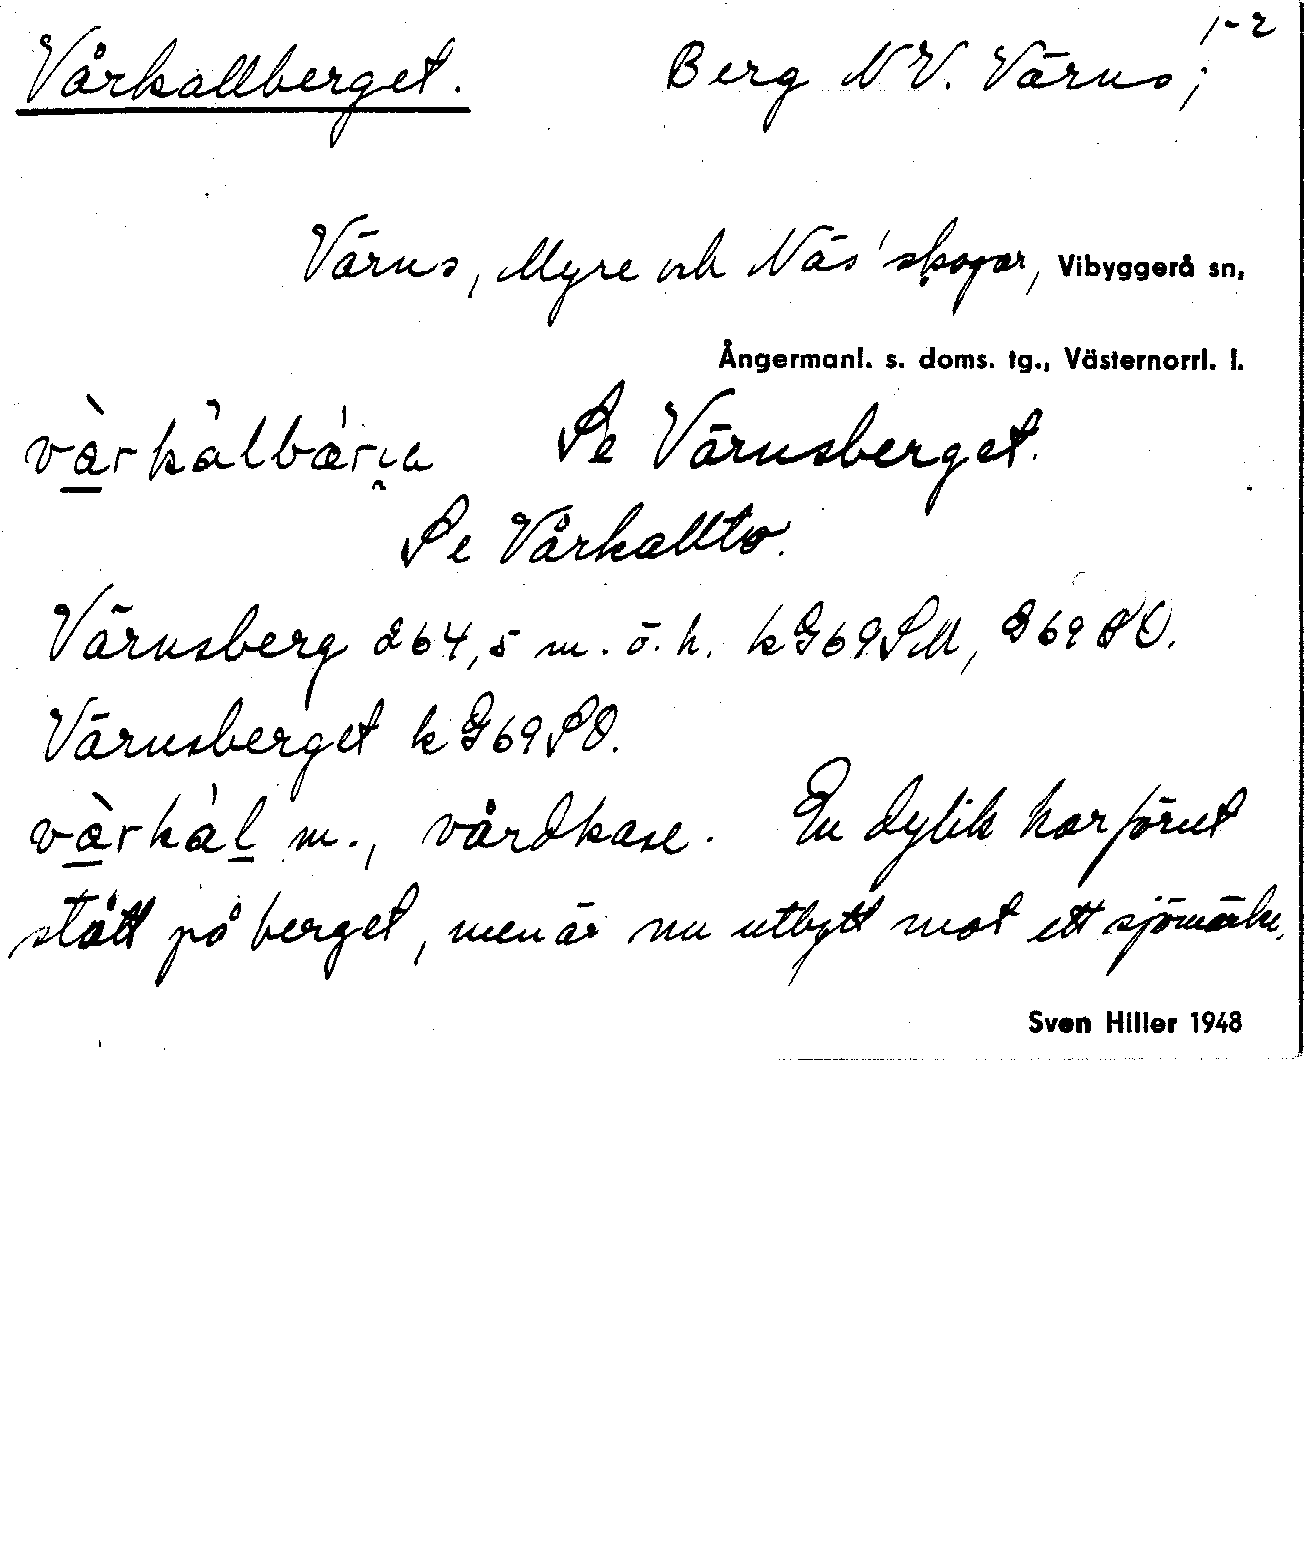 1-2
Vårkallberget. Berg NV. Värns;
Värns, Myre och Näs' skogar, Vibyggerå sn,
Ångermanl. s. doms. tg., Västernorrl. l.
Se Värnsberget.
Se Vårkallto.
Värnsberg 264,5 m. ö. h. k G69SM, G69SO.
Värnsberget k G69SO.
m., vårdkase. En dylik har förut
stått på berget, men är nu utbytt mot ett sjömärke.
Sven Hiller 1948